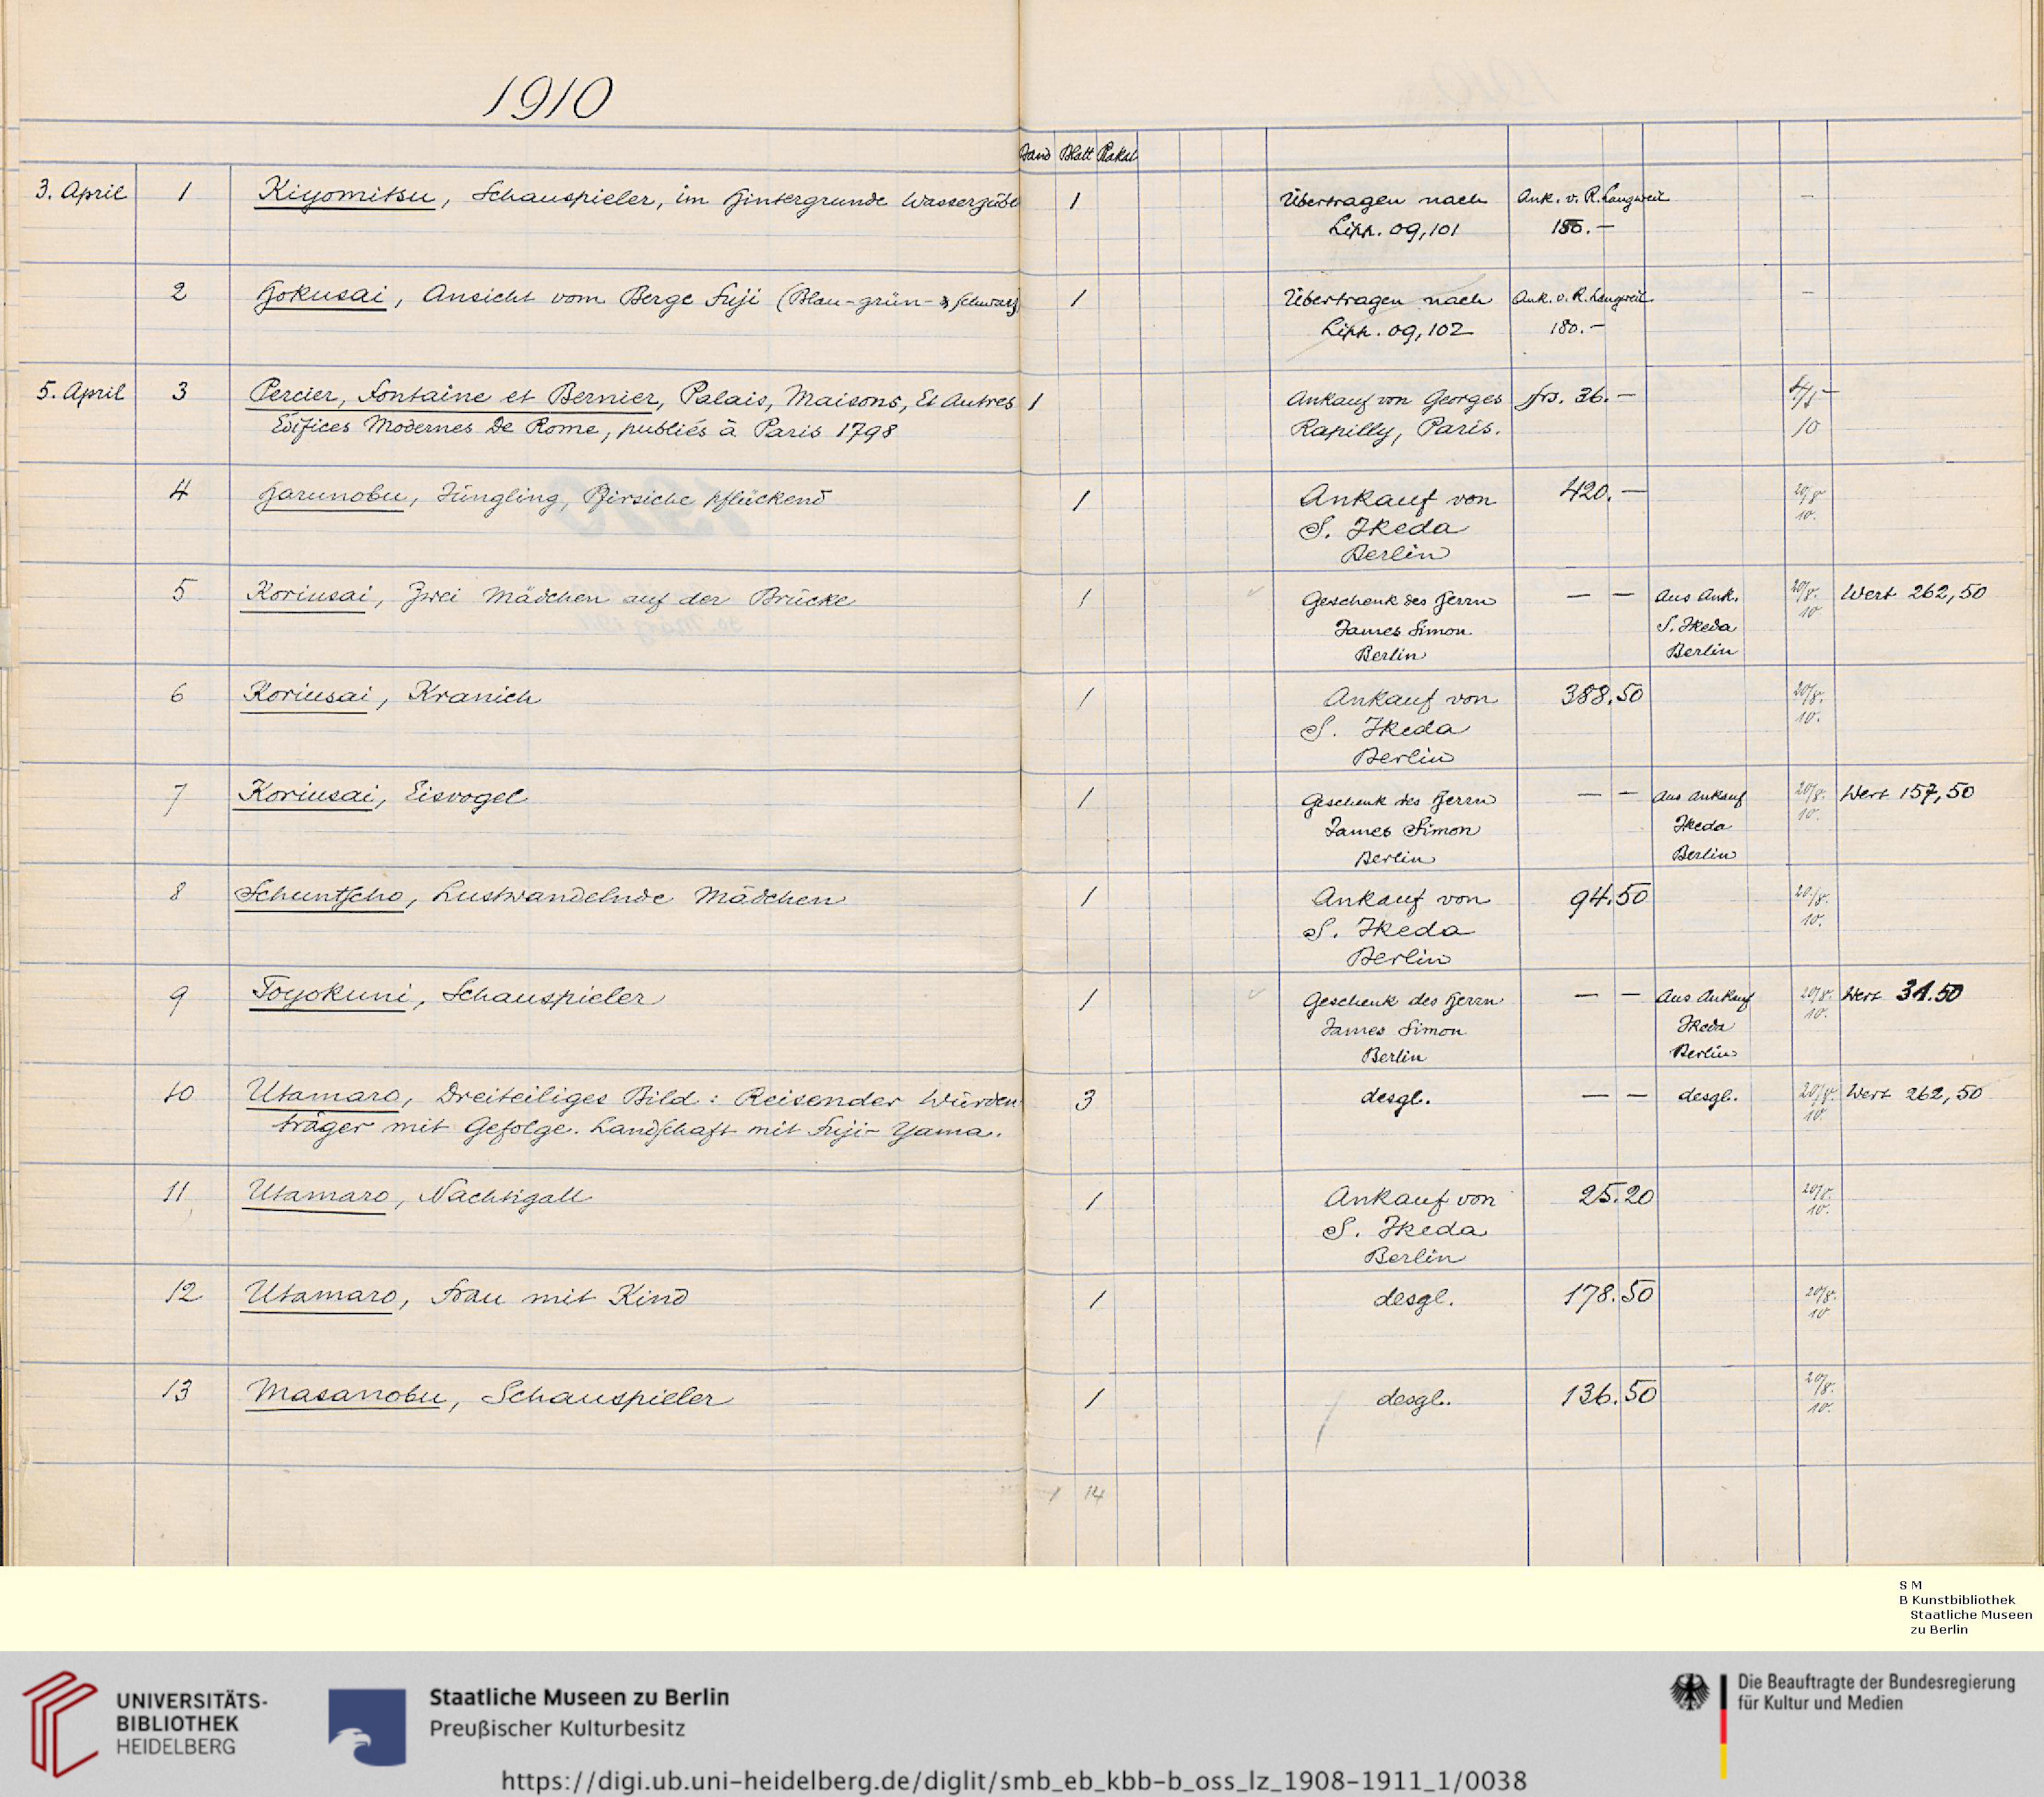 1910
Band Blatt Plakat
3. April 1 Kiyomitsu, Schauspieler, im Hintergrunde Wasserzübe 1 Übertragen nach Ank. v. R. Langweil —
Lipp. 09,101 180.—
2 Hokusai, Ansicht vom Berge Fuji (Blau-grün-schwarz) 1 Übertragen nach Ank. v. R. Langweil —
Lipp. 09,102 180.—
5. April 3 Percier, Fontaine et Bernier, Palais, Maisons, Et Autres 1 Ankauf von Georges frs. 36.—
Édifices Modernes De Rome, publiés à Paris 1798 Rapilly, Paris. 10
4 Harunobu, Jüngling, Pfirsiche pflückend 1 Ankauf von 420.— 20/8.
S. Ikeda 10.
Berlin
5 Koriusai, Zwei Mädchen auf der Brücke 1 Geschenk des Herrn — — Aus Ank. 20/8. Wert 262,50
James Simon S. Ikeda 10
Berlin Berlin
6 Koriusai, Kranich 1 Ankauf von 388.50 20/8.
S. Ikeda 10.
Berlin
7 Koriusai, Eisvogel 1 Geschenk des Herrn — — Aus Ankauf 20/8. Wert 157,50
James Simon Ikeda 10.
Berlin Berlin
8 Schuntscho, Lustwandelnde Mädchen 1 Ankauf von 94.50 20/8.
S. Ikeda 10.
Berlin
9 Toyokuni, Schauspieler 1 Geschenk des Herrn — — Aus Ankauf 20/8. Wert 31.50
James Simon Ikeda 10.
Berlin Berlin
10 Utamaro, Dreiteiliges Bild: Reisender Würden 3 desgl. — — desgl. 20/8. Wert 262,50
träger mit Gefolge. Landschaft mit Fuji-Yama. 10.
11 Utamaro, Nachtigall 1 Ankauf von 25.20 20/8.
S. Ikeda 10.
Berlin
12 Utamaro, Frau mit Kind 1 desgl. 178.50 20/8.
10
13 Masanobu, Schauspieler 1 desgl. 136.50 20/8.
10.
1 14
S M
B Kunstbibliothek
Staatliche Museen
zu Berlin
UNIVERSITÄTS-
BIBLIOTHEK
HEIDELBERG
Staatliche Museen zu Berlin
Preußischer Kulturbesitz
Die Beauftragte der Bundesregierung
für Kultur und Medien
https://digi.ub.uni-heidelberg.de/diglit/smb_eb_kbb-b_oss_lz_1908-1911_1/0038